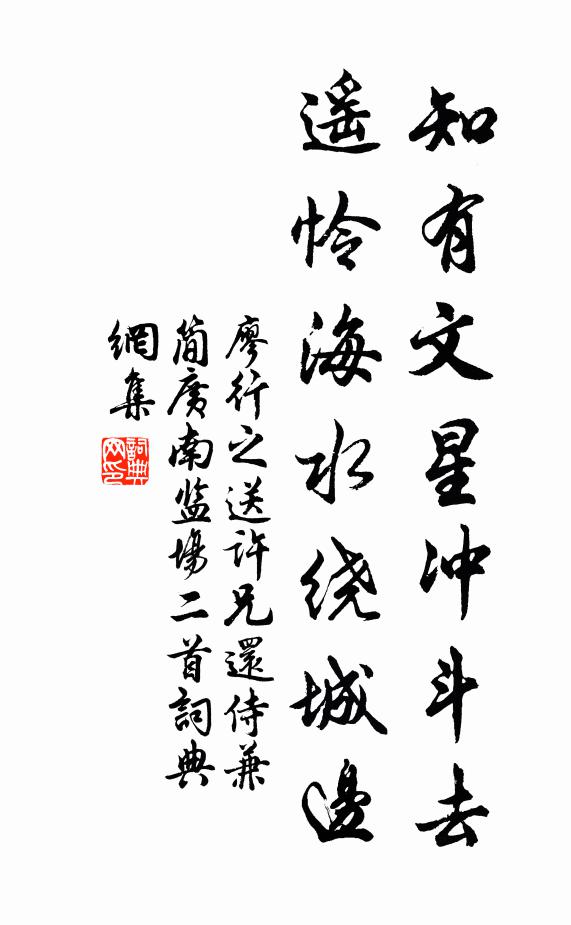 知有文星冲斗去
遥怜海水绕城邊
廖行之送許兄還侍兼
简廣南监場二首詞典
網集
詞典
网印